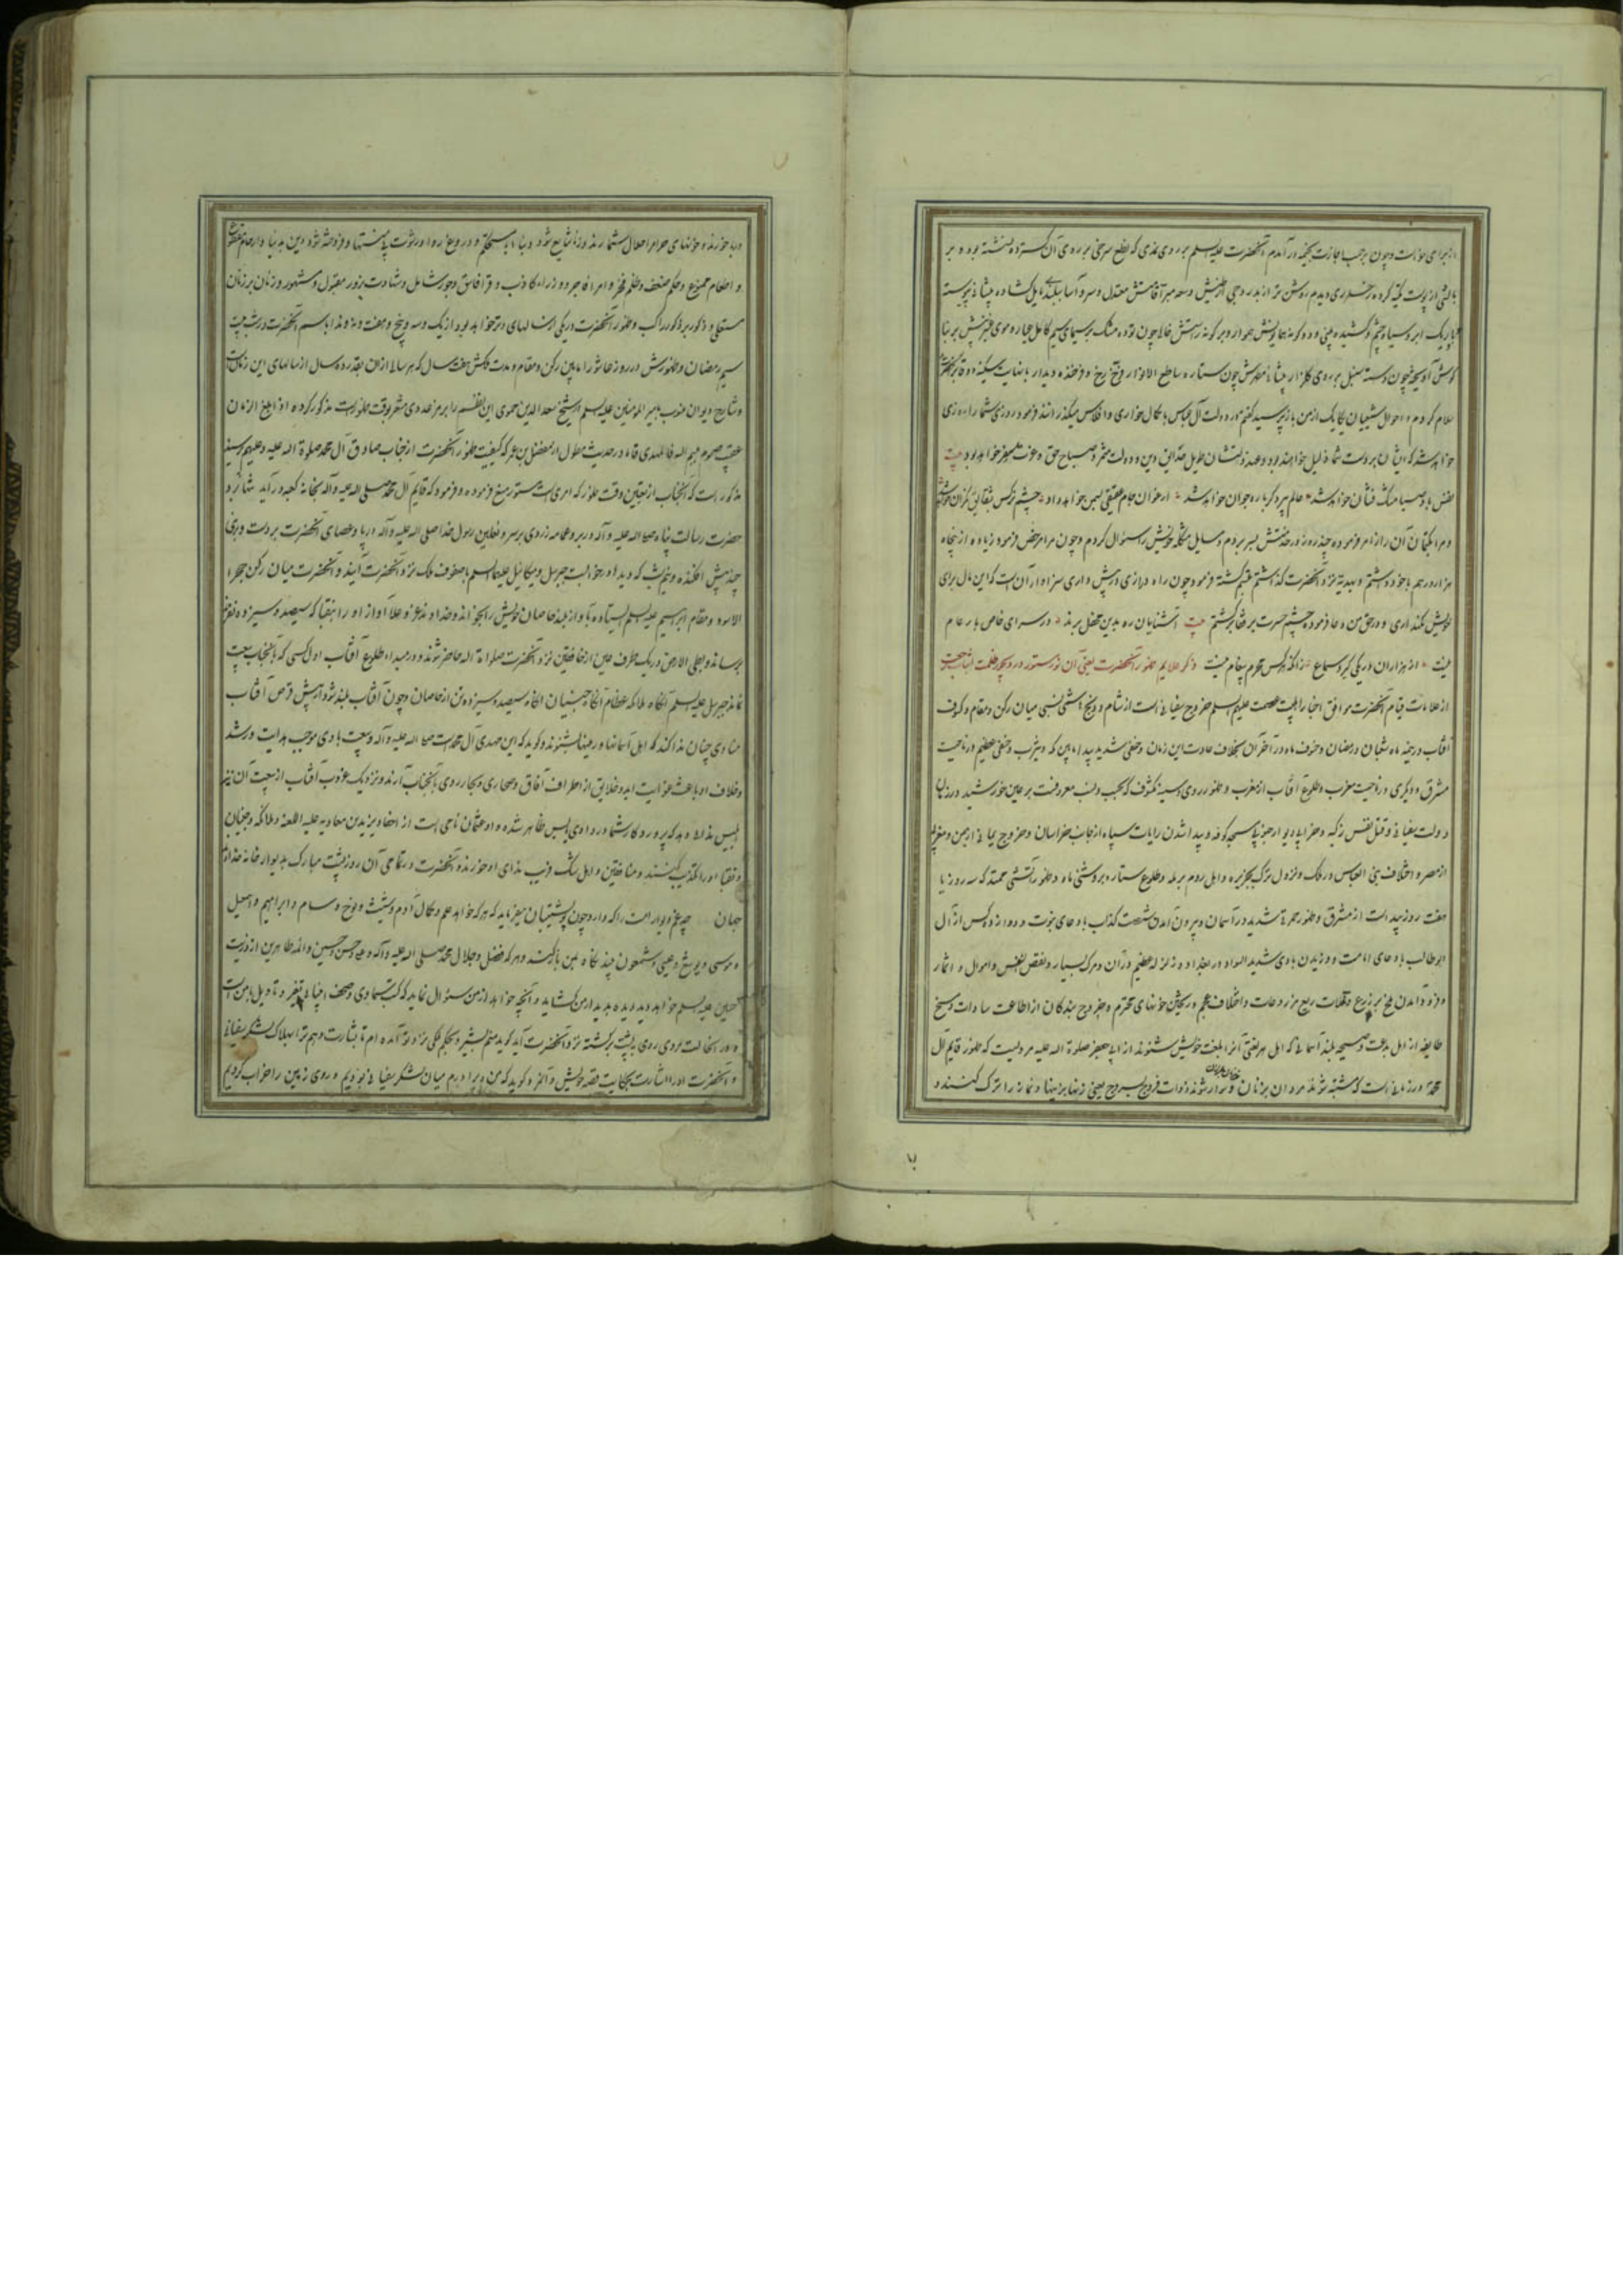 درآمدم آنحضرت علیه السلم بر روی نمدی که نطع سرخی بر روی آن کسترده نشسته بود و بر
بالشی از پوست تکیه کرده رخساری دیدم روشن تر از بدر
باریک ابرو سیاه چشم و کشیده بینی و بر کونه راستش خالی چون توده مشک بر سیمای سیم
چون دسته سنبل بر روی کلزار پیشانی چون ستاره ساطع الانوار
سلام کردم و احوال شیعیان یکایک از من باز پرسید کفتم در دولت آل عباس با کمال خواری و افلاس میکذرانند فرمود روزی شما را روزی
خواهد شد که ایشان بر دست شما ذلیل خواهند بود
نفس باد صبا مشک فشان خواهد شد عالم پیر دکر باره جوان خواهد شد ارغوان جام عقیقی بسمن خواهد داد چشم نرکس بشقایق نکران خواهد شد
و مرا بکتمان آن راز امر فرموده چند روز در خدمتش بسر بردم و مسایل مشکله خویش را سؤال کردم و چون مرا مرخص فرمود زیاده از پنجاه
هزار درهم با خود داشتم و بهدیه نزد آنحضرت کذاشتم متبسم کشته فرمود چون راه درازی در پیش داری سزاوار آن است که این مال برای
خویش نکهداری و در حق من دعا فرمود بچشم حسرت بر قفا برکشتم بیت آشنایان ره بدین محفل برند در سرای خاص بار عام
نیست از هزاران در یکی کیرد سماع زانکه هر کس محرم پیغام نیست ذکر علایم ظهور آنحضرت یعنی آن نور مستور در
از علامات قیام آنحضرت موافق اخبار اهلبیت عصمت علیهم السلم خروج سفیانی است از شام و میان رکن و مقام و کسوف
آفتاب در نیمه ماه شعبان و رمضان و خسوف ماه در آخر آن بخلاف عادت این زمان و خسفی شدید بیدا مابین مکه و یثرب و خسفی عظیم در ناحیت
مشرق و دیکری در ناحیت مغرب و طلوع آفتاب از مغرب و ظهور روی و سینه مکشوف که بحسب و نسب معروفست بر عین خورشید در زمان
دولت سفیانی و قتل نفس زکیه و خرابی دیوار مسجد کوفه و پیدا شدن رایات سیاه از جانب خراسان و خروج یمانی از یمن و مغربی
از مصر و اختلاف بنی العباس در ملک و نزول ترک بجزیره و اهل روم برمله و طلوع ستاره بروشنی ماه و ظهور آتشی ممتد که سه روز یا
هفت روز پیداست از مشرق و ظهور حمرة شدید در آسمان و بیرون آمدن شصت کذاب با دعای نبوت و دوازده کس از آل
ابو طالب با دعای امامت و وزیدن بادی شدید السواد در بغداد و زلزله عظیم در آن و مرک بسیار و نقص نفس و اموال و اثمار
و فرود آمدن ملخ بر زرع و قلت ریع مزروعات و اختلاف عجم و ریختن خونهای محترم و خروج بندکان از اطاعت سادات و مسخ
طایفه از اهل بدعت و صیحه بلند آسمانی که اهل هر لغتی آنرا بلغت خویش شنوند از ابی جعفر صلوة الله علیه مرویست که ظهور قایم آل
محمد در زمانی است که شبیه شوند مردان بزنان و زنان بمردان و سوار شوند ذوات فروج بسروج یعنی زنها بزینها و نماز را ترک کنند و
ربا خورند و خونهای حرام را حلال شمارند و زنا شایع شود و بناها مستحکم و دروغ روا و رشوت
و اطعام ممنوع و حکم ضعف و ظلم فخر و امرا فاجر و وزراء کاذب و قرا فاسق و جور شامل و شهادت بزور مقبول و مشهور و زنان بر زنان
مستغنی و ذکور بر ذکور راکب و ظهور آنحضرت در یکی از سالهای وتر خواهد بود از یک و سه و پنج و هفت و نه و ندا باسم آنحضرت در شب بیست
سیم رمضان و ظهورش در روز عاشورا مابین رکن و مقام و مدت ملکش هفت سال که هر سالی از آن بقدر ده سال از سالهای این زمانست
و شارح دیوان منسوب بامیر المؤمنین علیه السلم از شیخ سعد الدین حموی این نظم را بوقت ظهور است مذکور کرده اذا بلغ الزمان
عقیب صوم بسم الله فالمهدی قاما در حدیث مطول از مفضل بن عمر که کیفیت ظهور آنحضرت از جناب صادق آل محمد صلوة الله علیه و علیهم
مذکور است که آنجناب از تعیین وقت ظهور که امریست مستور منع فرموده و فرمود که قایم آل محمد صلی الله علیه و آله بخانه کعبه درآید
حضرت رسالت پناه صلی الله علیه و آله در بر و عمامه زردی بر سر و نعلین رسول خدا صلی الله علیه و آله در پا و عصای آنحضرت بر دست و بزی
چند پیش افکنده و جبریل و میکائیل علیهما السلم با صفوف ملک نزد آنحضرت آیند و آنحضرت میان رکن حجر
الاسود و مقام ابرهیم علیه السلم ایستاده بآواز بلند خاصان خویش را بخواند و خداوند عز و علا آواز او را بنقبا که سیصد و سیزده نفرند
برساند و بطی الارض در یک طرفه عین از خافقین نزد آنحضرت صلوات الله حاضر شوند و در مبداء طلوع آفتاب اول کسی که بآنجناب بیعت
نماید جبریل علیه السلم آنکاه ملائکه عظام آنکاه جنیان آنکاه سیصد و سیزده تن از خاصان و چون آفتاب بلند شود از پیش قرص آفتاب
منادی چنان ندا کند که اهل آسمانها و زمینها بشنوند و کوید که این مهدی آل محمد است صلی الله علیه و آله و بیعت با وی موجب هدایت و رشد
و خلاف او باعث غوایت ابد و خلایق از اطراف آفاق و صحاری و بحار روی بآنجناب آرند و نزدیک غروب آفتاب از سمت آن نیز
ابلیس ندا در دهد که پرورد کار شما در وادی یابس ظاهر شده و او عثمان نامی است از احفاد یزید بن معاویه علیه اللعنه و ملائکه و جنیان
و نقبا او را تکذیب کنند و منافقین و اهل شک و ریب ندای او خورند و آنحضرت در تمامی آن روز پشت مبارک بدیوار خانه خدا
جهان چه غم دیوار امت را که دارد چون تو پشتیبان میفرماید که هر که خواهد علم و کمال آدم و شیث و نوح و سام و ابراهیم و اسمعیل
و موسی و یوشع و عیسی و شمعون بیند نکاه بمن باز کند و هر که فضل و جلال محمد صلی الله علیه و آله و علی و حسن و حسین و ائمه طاهرین از ذریت
حسین علیه السلم خواهد دید دیده بدیدار من کشاید و آنچه خواهد از من سئوال نماید که کتب سماوی و صحف انبیا
و در آن حالت مردی روی بپشت برکشته نزد آنحضرت آید کوید منم بشیر و بحکم ملکی نزد تو آمده ام تا بشارت دهم ترا بهلاک لشکر سفیانی
و آنحضرت او را اشارت بحکایت قصه خویش و کوید که من و برادرم میان لشکر سفیانی بودیم و روی زمین را خراب کردیم